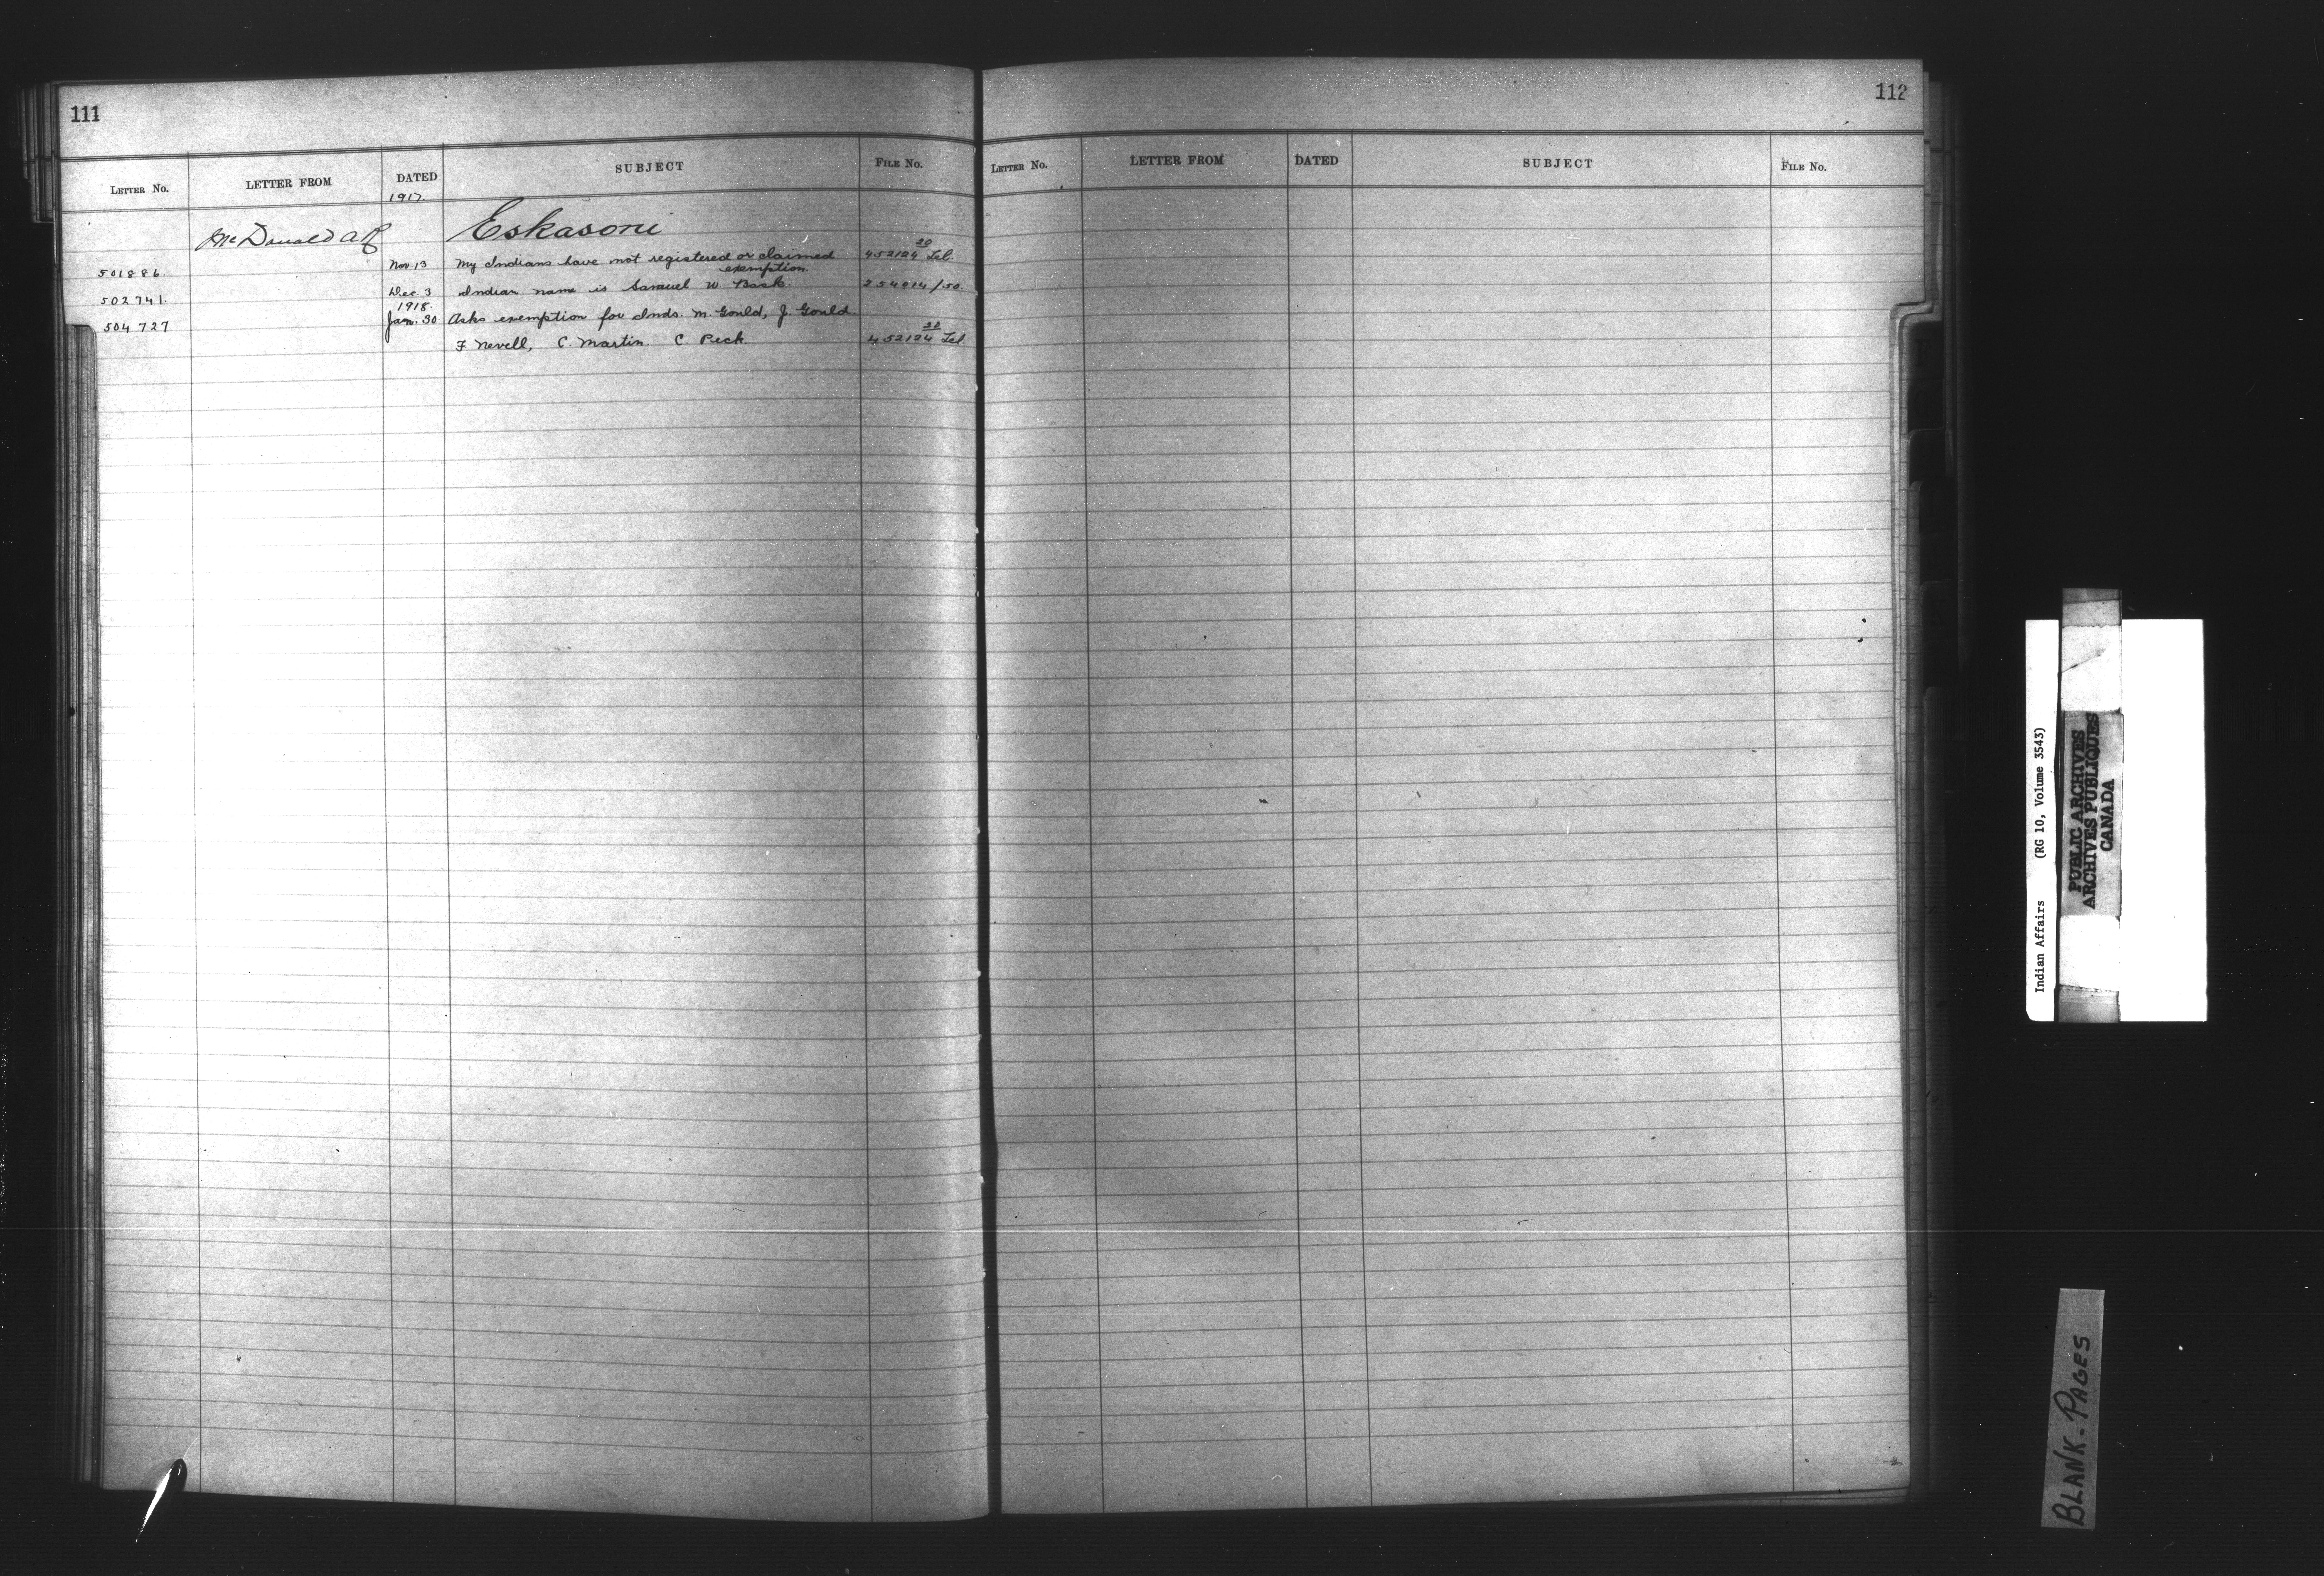 111
LETTER NO. LETTER FROM DATED SUBJECT FILE NO.
1917.
McDonald A R Eskasoni
501886. Nov 13 My Indians have not registered or claimed 452124 20
exemption.
502741. Dec 3 Indian name is Samuel W Bask. 254014/50.
1918.
504727 Jan. 30 Asks exemption for Inds. M. Gould, J. Gould.
F Nevell, C. Martin. C. Peck. 452124 22
112
LETTER NO. LETTER FROM DATED SUBJECT FILE NO.
Indian Affairs (RG 10, Volume 3543)
PUBLIC ARCHIVES
ARCHIVES PUBLIQUES
CANADA
BLANK-PAGES